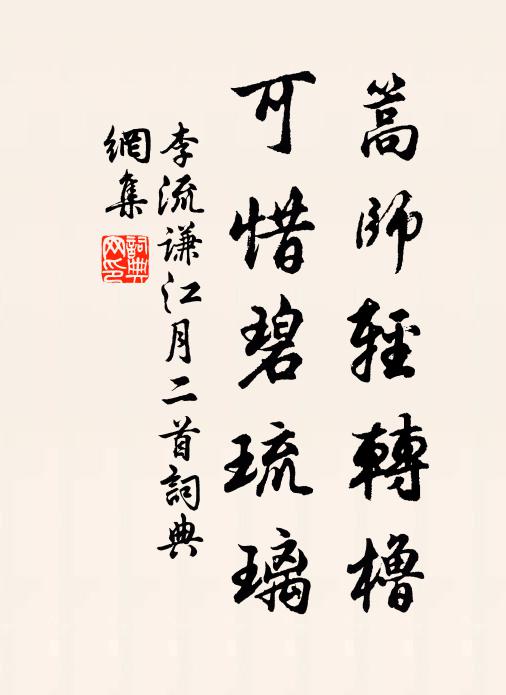 篙師輕轉櫓
可惜碧琉璃
李流謙江月二首詞典
網集
詞典
网印